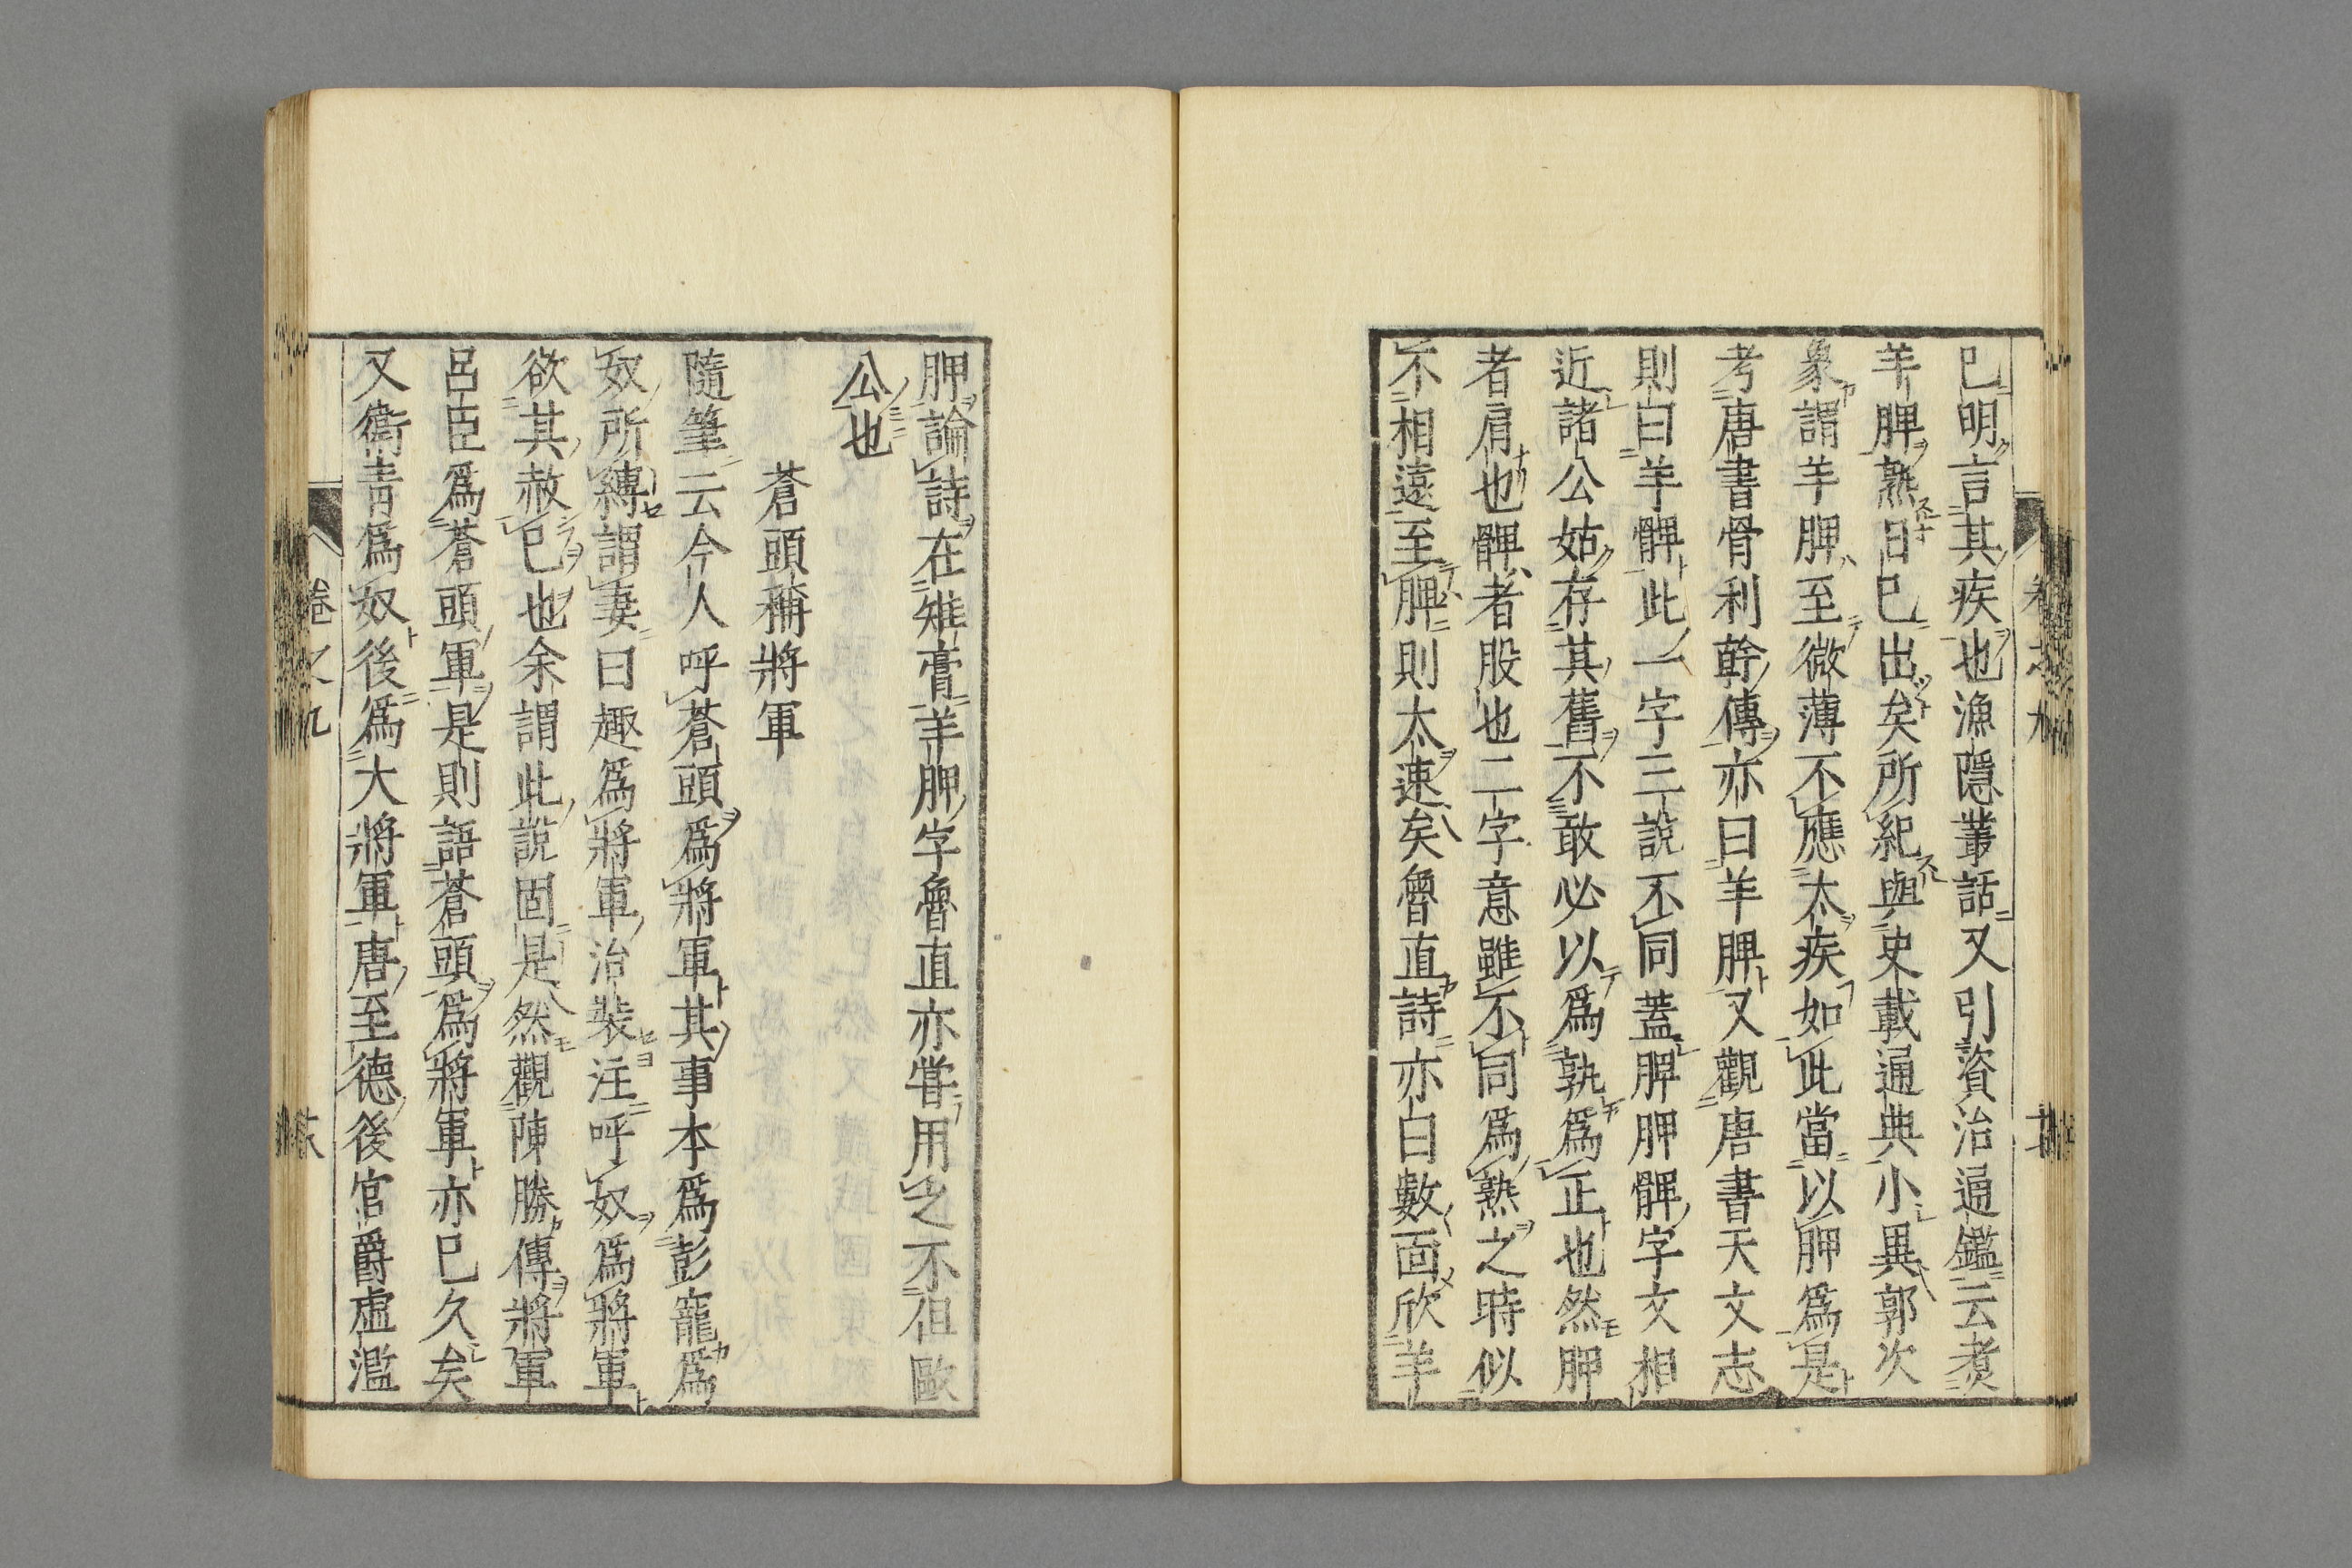 已明言其疾也漁隱叢話又引資治通鑑云煑
羊脾熟日已出矣所紀與史載通典小異郭次
象謂羊胛至微薄不應太疾如此當以胛爲是
考唐書骨利幹傳亦曰羊胛又觀唐書天文志
則曰羊髀此一字三說不同蓋脾胛髀字文相
近諸公姑存其舊不敢必以爲孰爲正也然胛
者肩也髀者股也二字意雖不同爲熟之時似
不相遠至脾則太速矣魯直詩亦曰數面欣羊
胛論詩在雉膏羊胛字魯直亦嘗用之不但歐
公也
蒼頭稱將軍
隨筆云今人呼蒼頭爲將軍其事本爲彭寵爲
奴所縛謂妻曰趣爲將軍治裝注呼奴爲將軍
欲其赦已也余謂此說固是然觀陳勝傳將軍
呂臣爲蒼頭軍是則語蒼頭爲將軍亦已久矣
又衛青爲奴後爲大將軍唐至德後官爵虛濫
卷之九